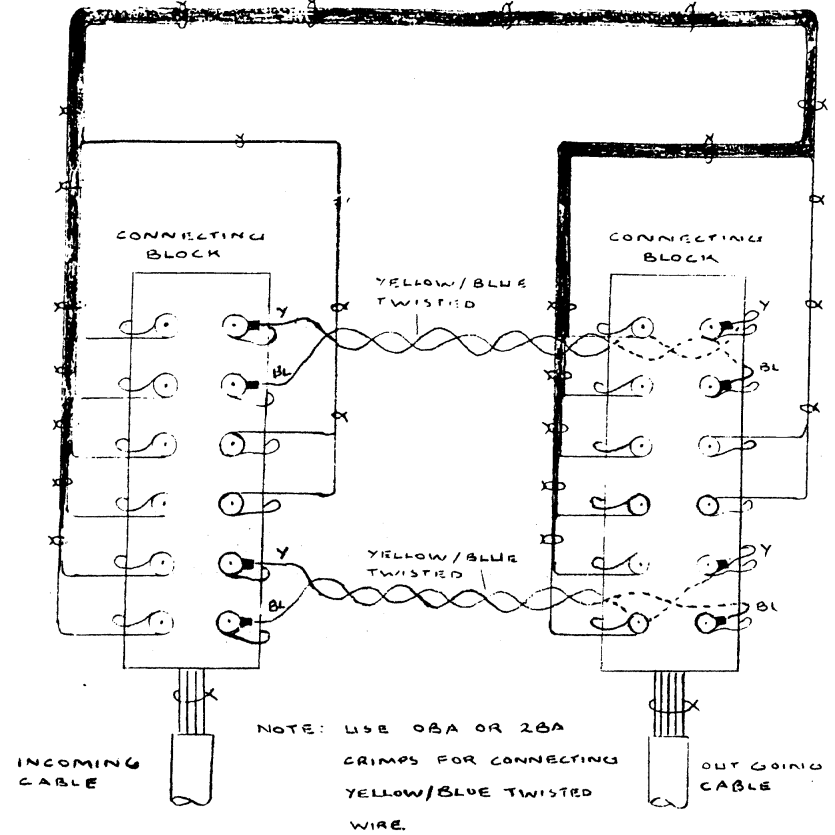 CONNECTING
BLOCK
CONNECTING
BLOCK
YELLOW/BLUE
TWISTED
Y
BL
Y
BL
YELLOW/BLUE
TWISTED
Y
BL
Y
BL
NOTE: USE 0BA OR 2BA
CRIMPS FOR CONNECTING
YELLOW/BLUE TWISTED
WIRE.
INCOMING
CABLE
OUT GOING
CABLE